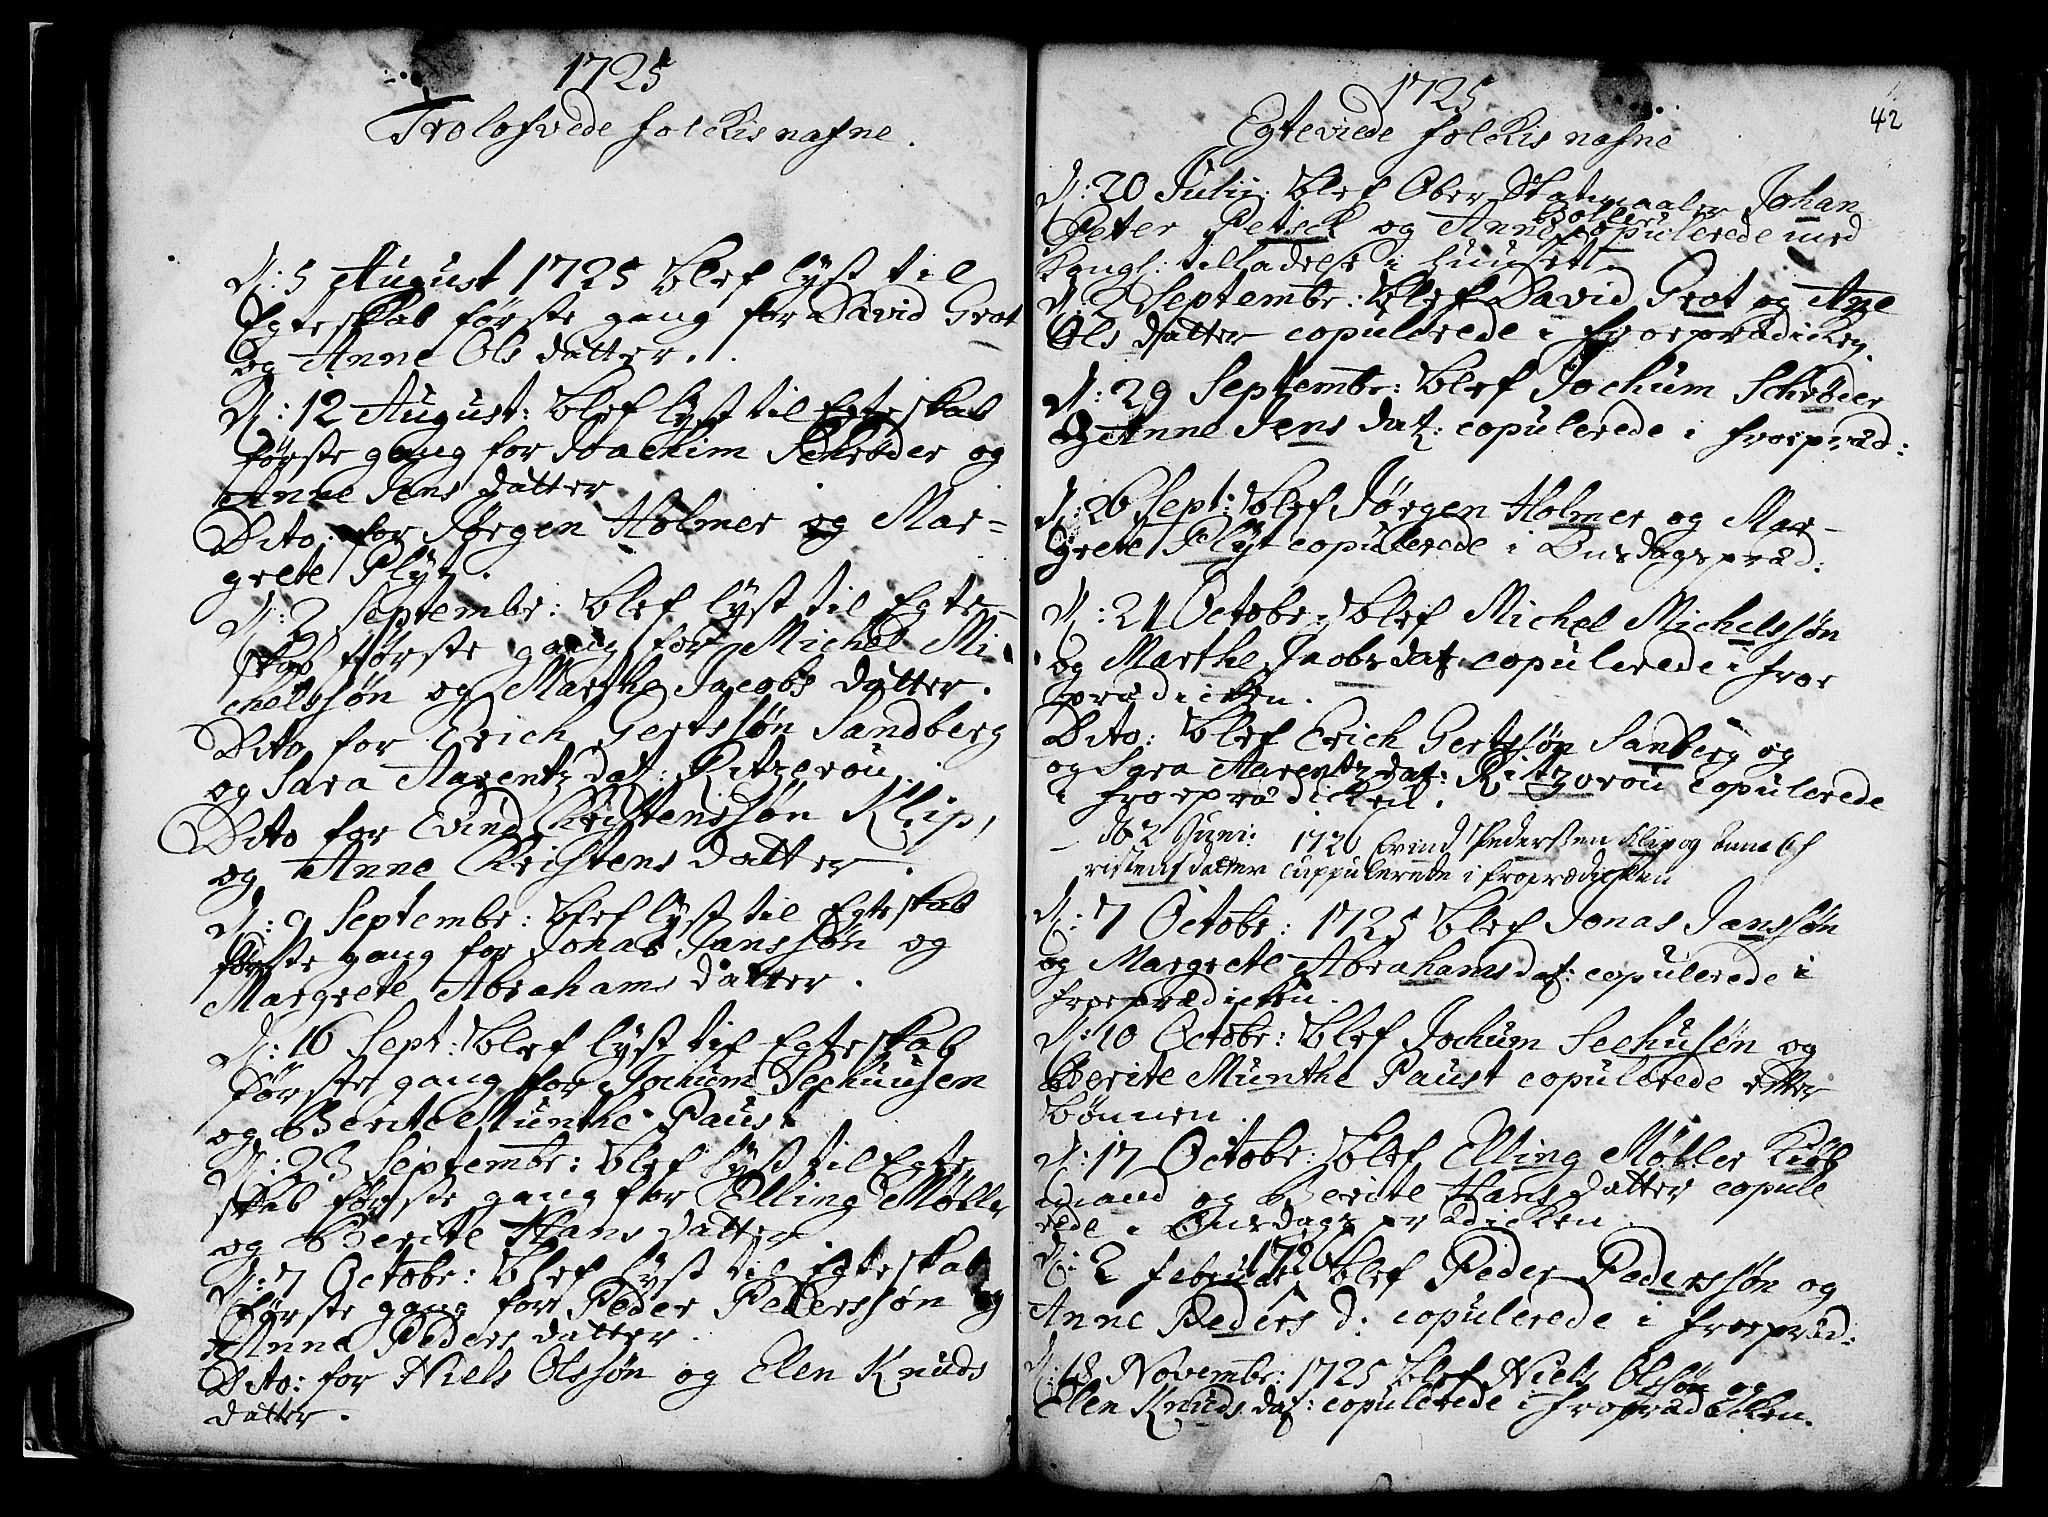 1725
Trolofvede folckis nafne.
D: 5 August 1725 blef lyst til
Egteskab første gang for David Grot
og Anne Ols datter.
D: 12 August: blef lyst til Egteskab
første gang for Joachim Schrøder og
Anne Jens datter
Dito: for Jørgen Holmer og Mar=
grete Plytz.
D: 2 Septembr: blef lyst til Egte-
skab første gang for Michel Mi-
chelssøn og Marthe Jacobs datter.
Dito for Erich Gertssøn Sandberg
og Sara Aarentz dat: Ritzerou
Dito for Evind Christenssøn Klip,
og Anne Christens datter.
D: 9 Septembr: blef lyst til Egteskab
første gang for Jonas Janssøn og
Margrete Abrahams datter.
D: 16 Sept: blef lyst til Egteskab
første gang for Jochum Seehuusen
og Berite Munthe Paust
D: 23 Septembr: blef lyst til Egte
skab første gang for Elling Møller
og Berite Hans datter
D: 7 Octobr: blef lyst til Egteskab
første gang for Peder Pederssøn og
Anne Peders datter.
Dito: for Niels Olssøn og Elen Knuds
datter.
42
1725
Egteviede folckis nafne
D: 20 Julii: blef Ober Johan
Peter Petsck og Anne copulerede med
Kongl: tilladelse i huuset
D: 2 Septembr: blef David Grot og Ane
Ols datter copulerede i froeprædicken.
D: 29 Septembr: blef Jochum Schrøder
og Anne Jens dat: copulerede i froepræd:
D: 26 Sept: blef Jørgen Holmer og Mar-
grete Plyt copulerede i Onsdagspræd:
D: 21 Octobr: blef Michel Michelssøn
og Marthe Jacobs dat copulerede i froe
prædicken.
Dito: blef Erich Gertssøn Sanberg og
og Sara Aarentz dat: Ritzerou copulerede
i froeprædicken.
d 2 Juni: 1726 Evind Pederssen Klip og Anna Ch
ristens datter cuppulerede i froprædicken
D: 7 Octobr: 1725 blef Jonas Janssøn
og Margrete Abrahams dat: copulerede i
froeprædicken.
D: 10 Octobr: blef Jochum Seehusen og
Berite Munthe Paust copulerede efter
bønnen.
D: 17 Octobr: blef Elling Møller
mand og Berite Hans datter copule
rede i Onsdags prædicken
1726
D: 2 Februar blef Peder Pederssøn og
Anne Peders d: copulerede i froepræd:
D: 18 Novembr: 1725 blef Niels Olssøn og
Elen Knuds dat: copulerede i froprædicken.